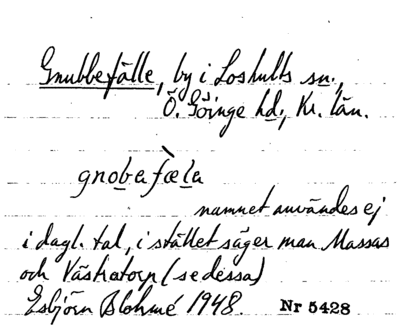 Gnubbefälle, by i Loshults sn.,
Ö. Göinge hd., Kr. län.
gnobafæ̀la
namnet användes ej
i dagl. tal, i stället säger man Massas
och Västratorp (se dessa)
Esbjörn Blohmé 1948. Nr 5428